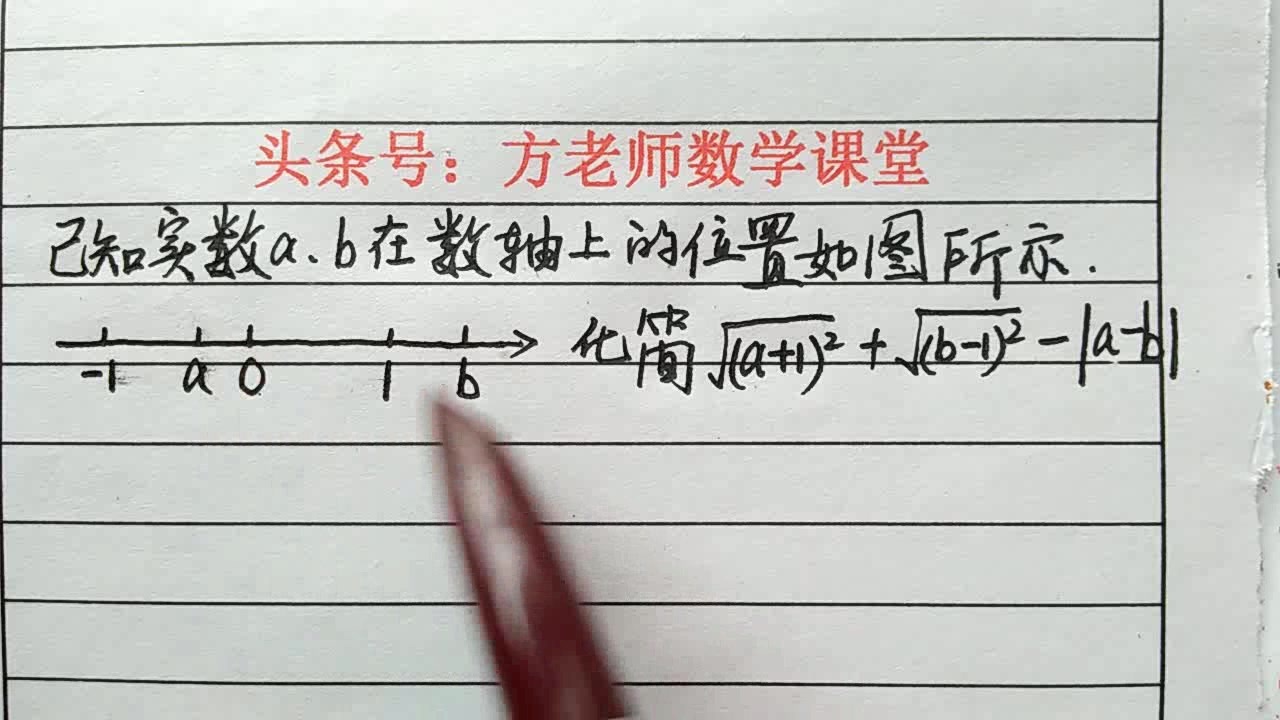 头条号：方老师数学课堂
已知实数a、b在数轴上的位置如图所示.
-1 a 0 1 b 化简√(a+1)² + √(b-1)² - |a-b|